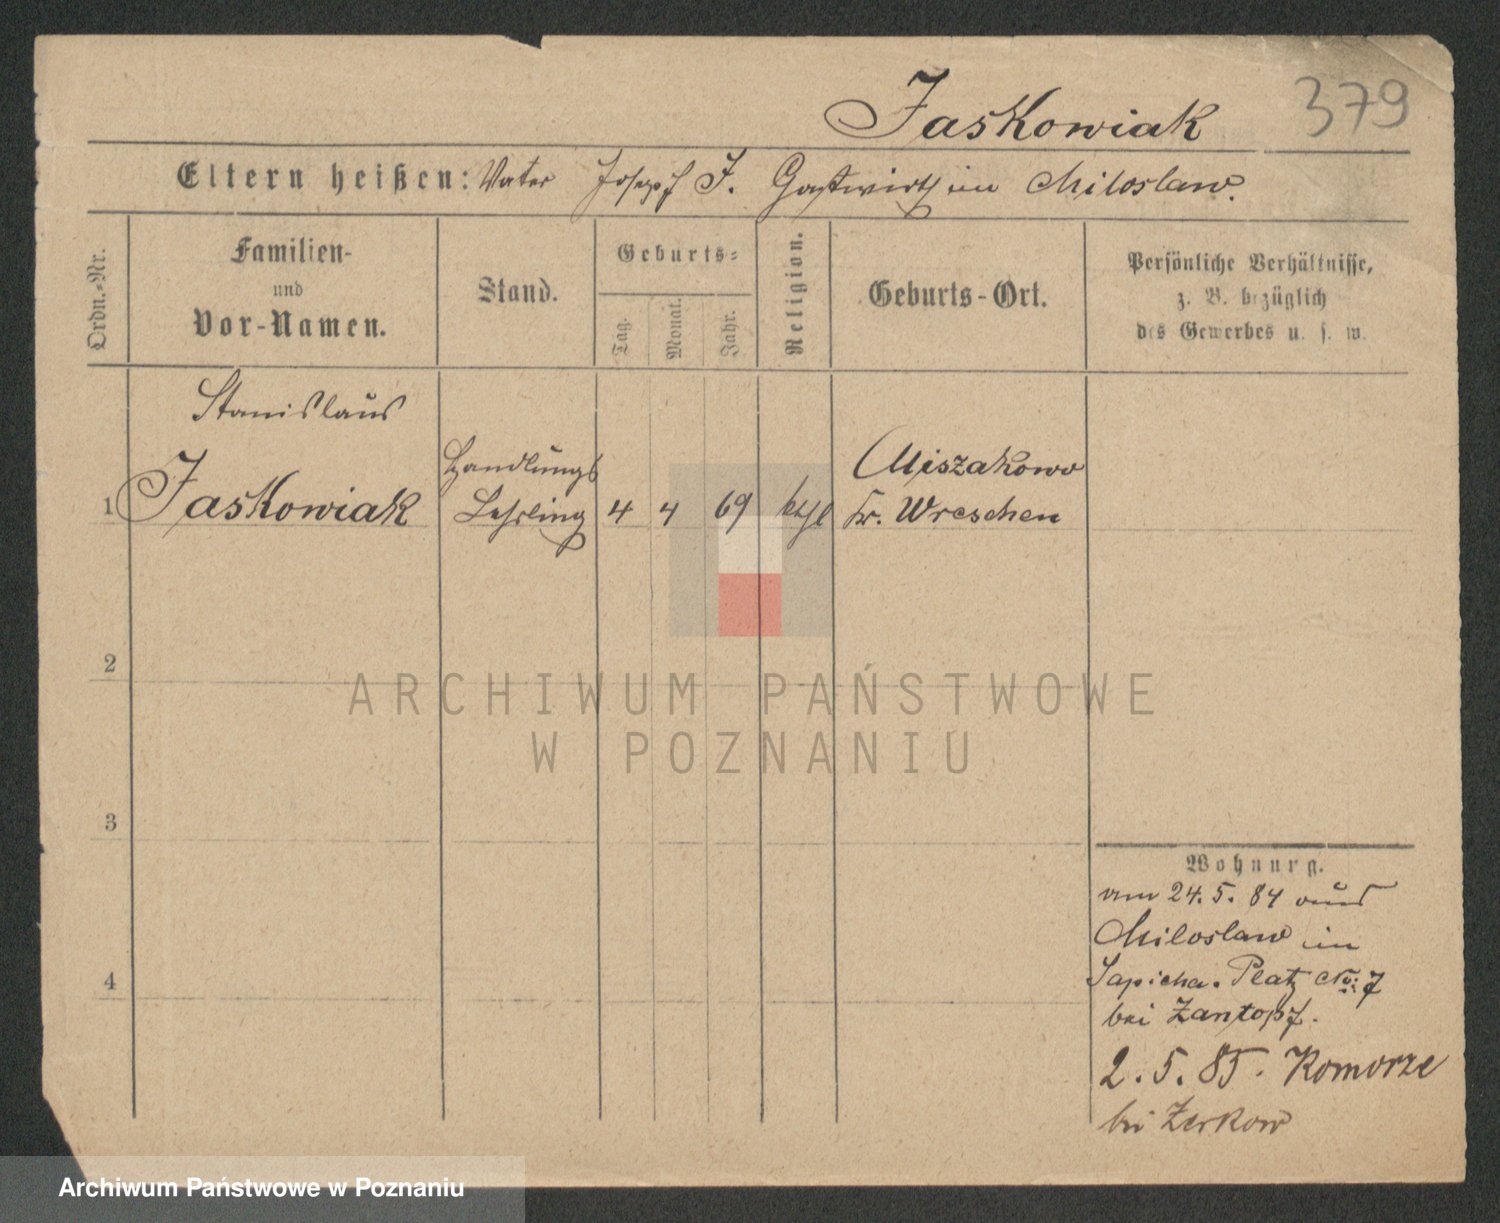 Jaskowiak
379
Eltern heißen: Vater Joseph J. Gastwirth in Miloslaw.
Ordn.-Nr.
Familien-
und
Vor-Namen.
Stand.
Geburts-
Tag.
Monat.
Jahr.
Religion.
Geburts-Ort.
Persönliche Verhältnisse,
z. B. bezüglich
des Gewerbes u. s. w.
Stanislaus
1 Jaskowiak
Handlungs
Lehrling
4 4 69 kthl
Miszakowo
Kr. Wreschen
2
3
4
Wohnung.
am 24. 5. 84 aus
Miloslaw in
Sapieha. Platz No: 7
bei Zantopf.
2. 5. 85. Komorze
bei Zerkow
ARCHIWUM PAŃSTWOWE
W POZNANIU
Archiwum Państwowe w Poznaniu